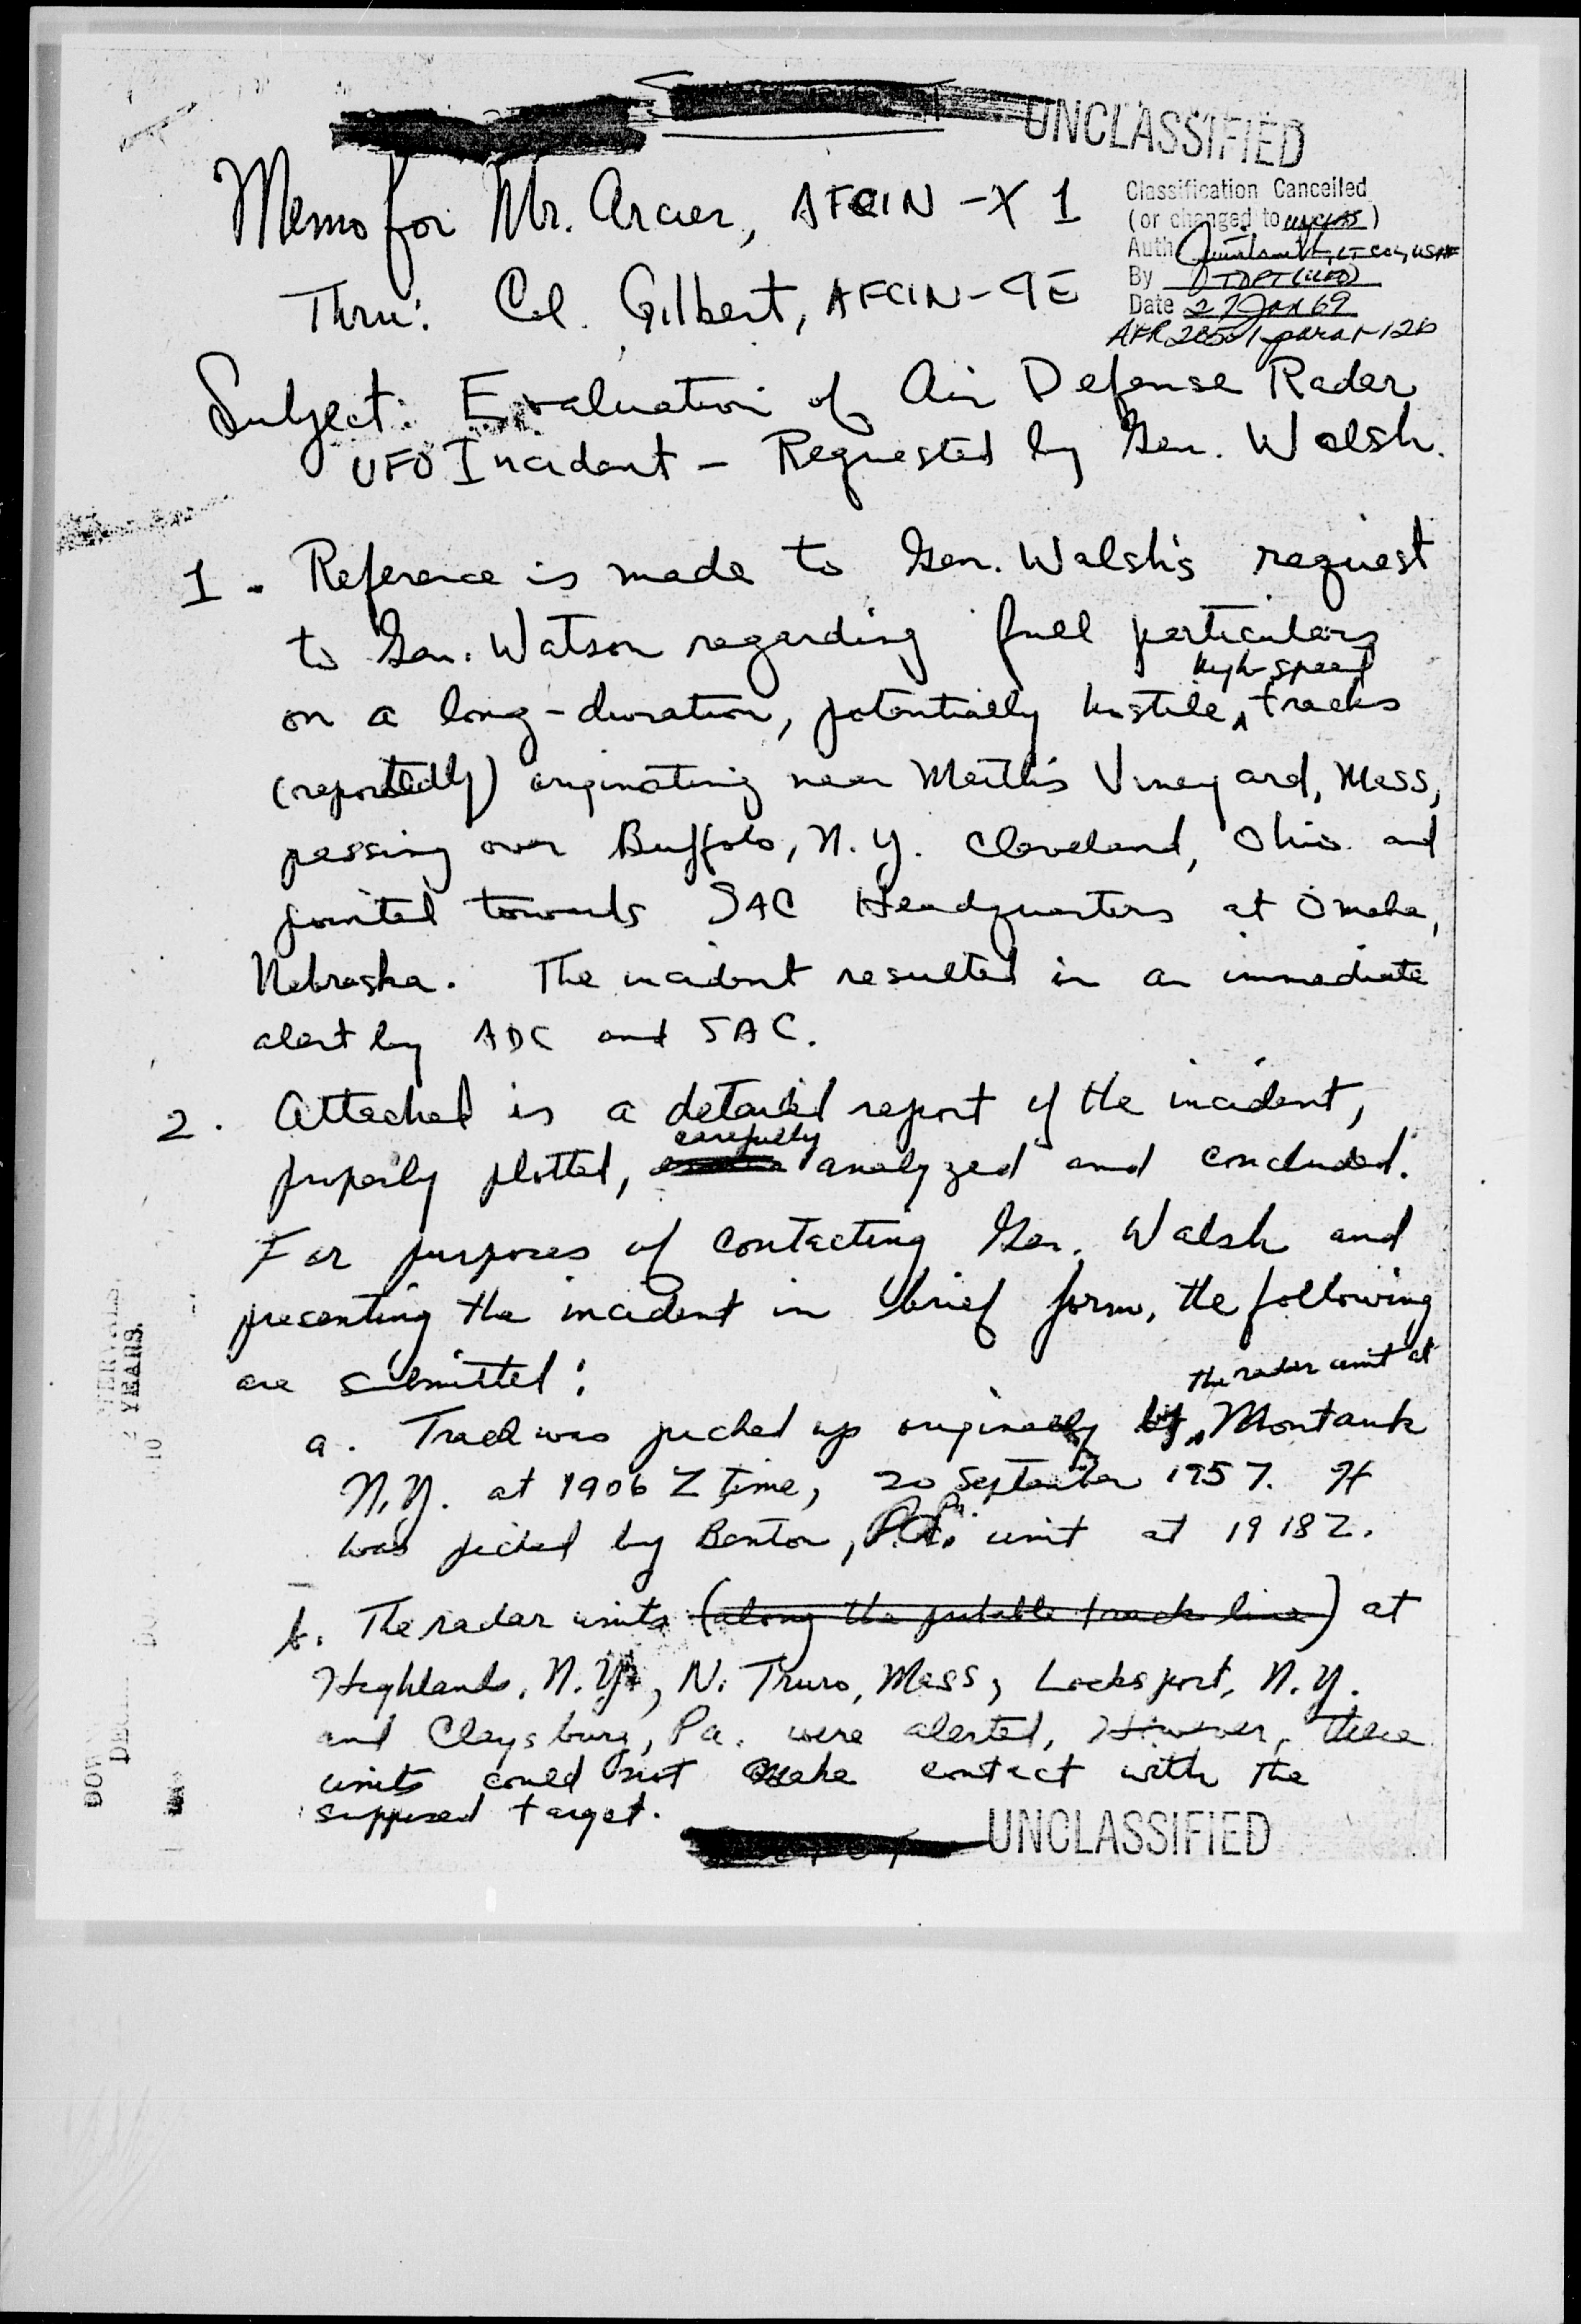 UNCLASSIFIED
Memo for Mr. Arcier, AFCIN-X1
Classification Cancelled
(or changed to unclass)
Auth LT COL, USAF
By TDPT (UFO)
Date 27 Jan 69
Thru: Col. Gilbert, AFCIN-4E
Subject: Evaluation of Air Defense Radar
UFO Incident - Requested by Gen. Walsh.
1. Reference is made to Gen. Walsh's request
to Gen. Watson regarding full particulars
high-speed
on a long-duration, potentially hostile, tracks
(reportedly) originating near Vineyard, Mass,
passing over Buffalo, N.Y. Cleveland, Ohio and
pointed towards SAC Headquarters at Omaha,
Nebraska. The incident resulted in an immediate
alert by ADC and SAC.
2. Attached is a detailed report of the incident,
carefully
properly plotted, analyzed and concluded.
For purposes of contacting Gen. Walsh and
presenting the incident in brief form, the following
are submitted:
the radar unit at
a. Track was picked up originally by Montauk
N.Y. at 1906 Z time, 20 September 1957. It
was picked by Benton, Pa. unit at 1918Z.
b. The radar units (along the probable track line) at
Highlands, N.Y., N. Truro, Mass, Locksport, N.Y.
and Claysburg, Pa. were alerted, However, these
units could not make contact with the
supposed target.
UNCLASSIFIED